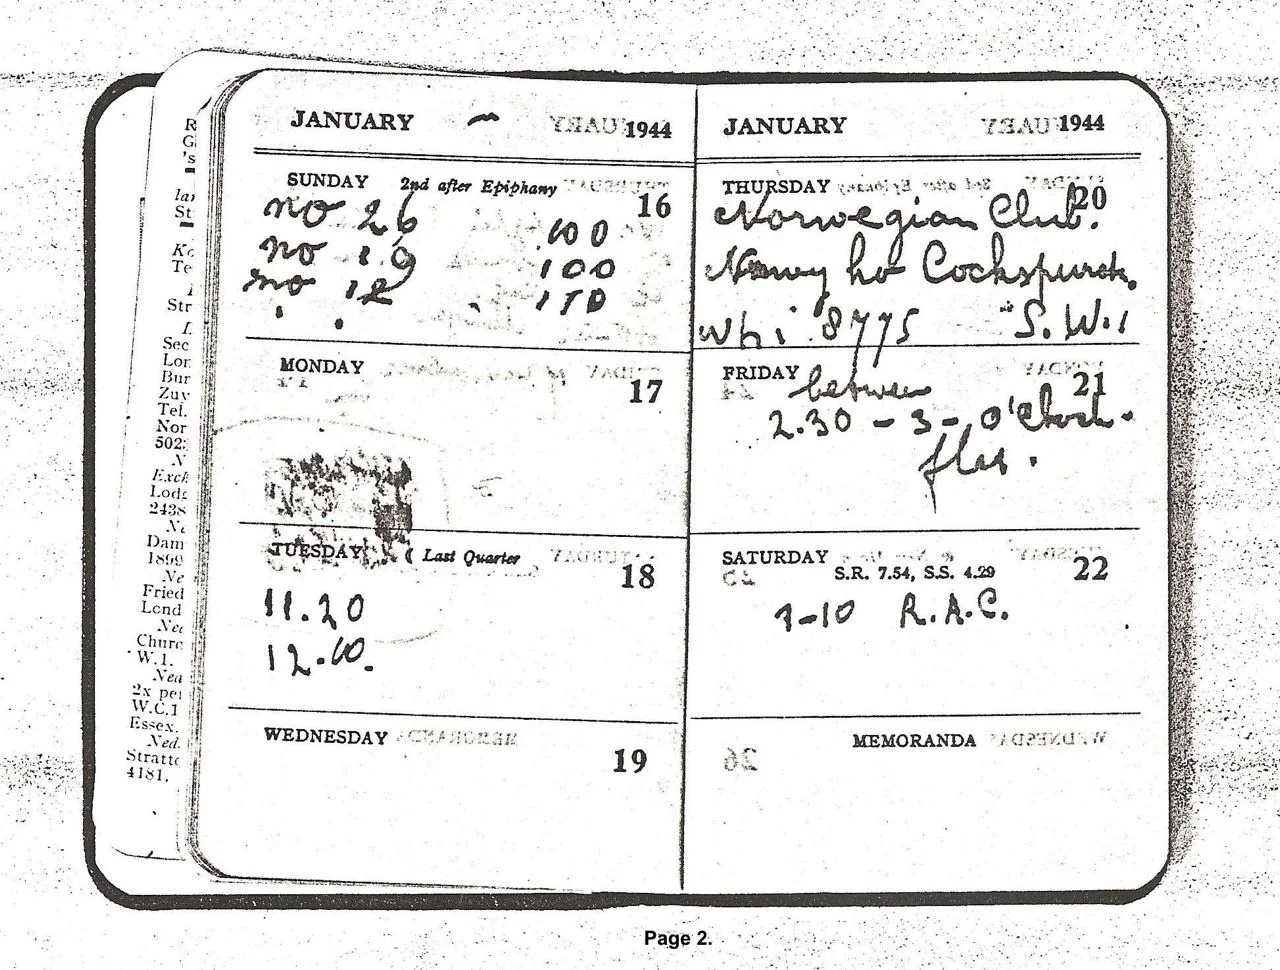 JANUARY 1944
SUNDAY 2nd after Epiphany 16
no 26 100
no 19 100
no 12
MONDAY 17
TUESDAY ( Last Quarter 18
11.20
12.10.
WEDNESDAY 19
JANUARY 1944
THURSDAY 20
Norwegian Club.
Cockspur
Whi 8775 S.W.1
FRIDAY 21
between
2.30 - 3 - O'Clock.
SATURDAY 22
S.R. 7.54, S.S. 4.29
7-10 R.A.C.
MEMORANDA
R
G
's
lar
St
Kc
Te
Str
Sec
Lor
Bur
Zuy
Tel.
Nor
502
N
Exch
Lods
2438
Ne
Dam
1899
Ne
Fried
Lond
Nea
Churc
W.1.
Nea
2x per
W.C.1
Essex.
Ned.
Stratto
4181.
Page 2.